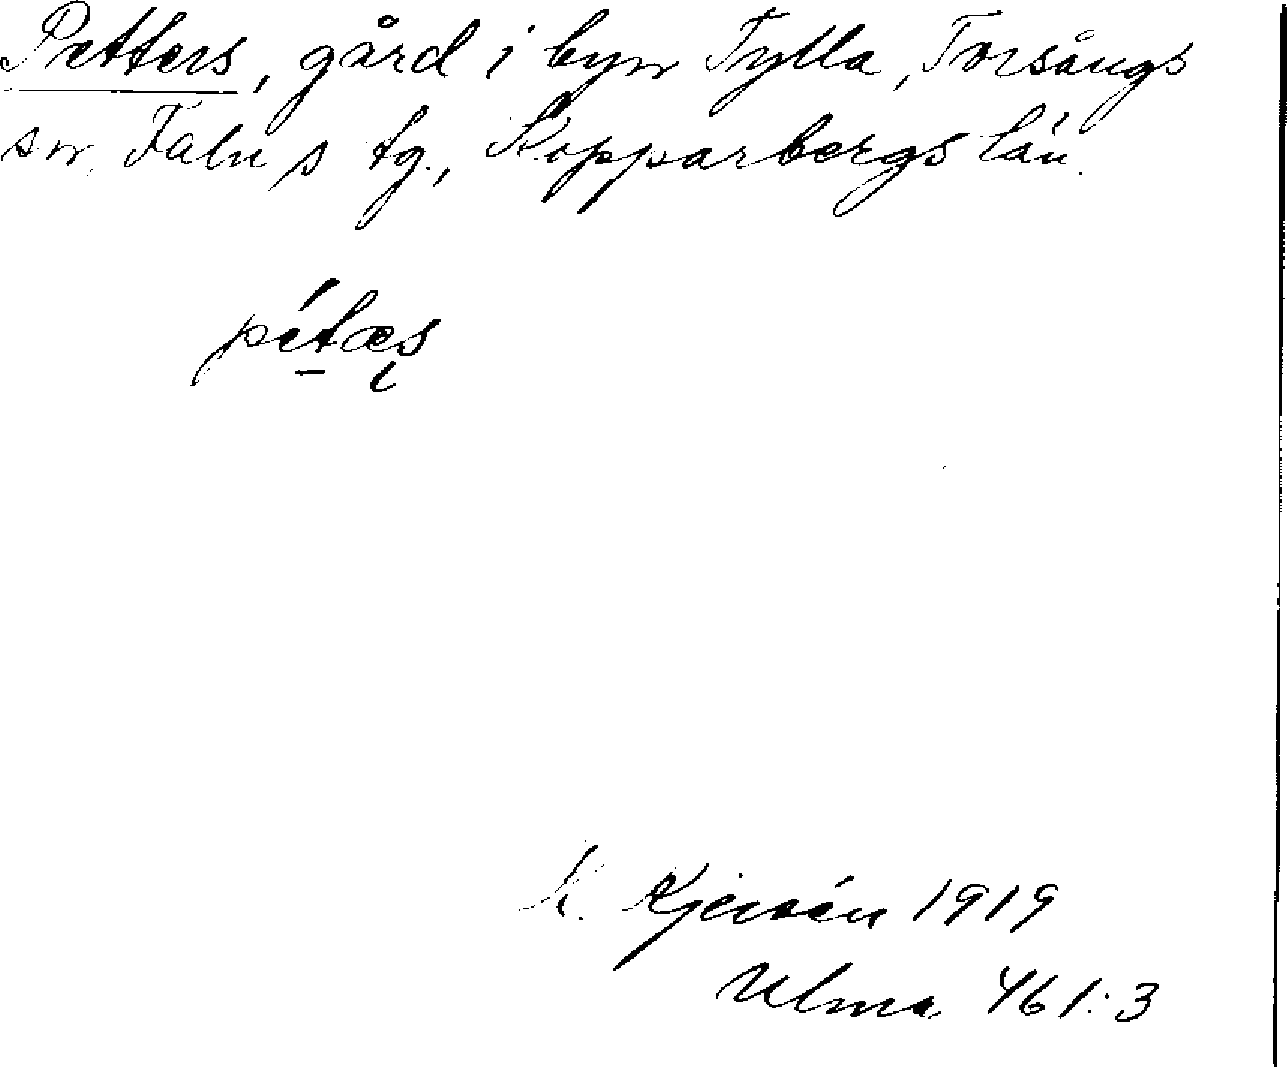 Petters, gård i byn Tylla, Torsångs
sn, Falu s tg., Kopparbergs län.
pétæs
K. Kjersén 1919
Ulma 461:3